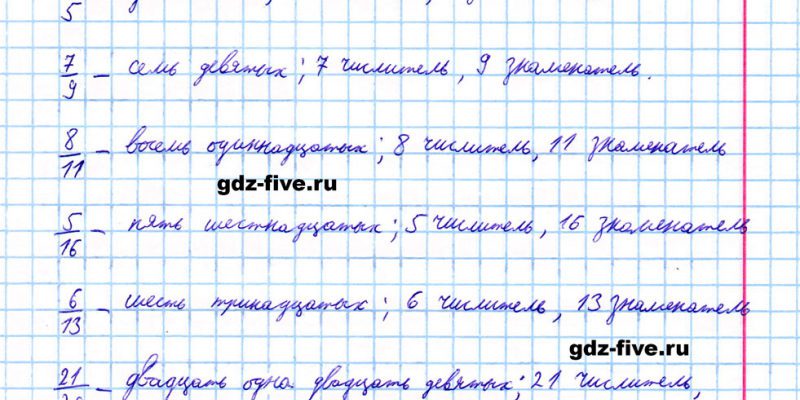 5
7/9 – семь девятых; 7 числитель, 9 знаменатель.
8/11 – восемь одиннадцатых; 8 числитель, 11 знаменатель
gdz-five.ru
5/16 – пять шестнадцатых; 5 числитель, 16 знаменатель
6/13 – шесть тринадцатых; 6 числитель, 13 знаменатель
gdz-five.ru
21 – двадцать одна двадцать девятых; 21 числитель,